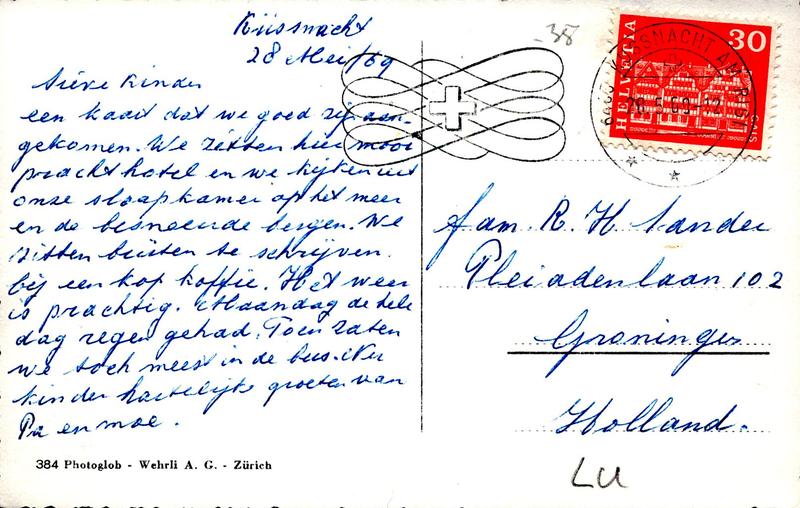 Küssnacht
28 Mei/69
Lieve Kinder
een kaart dat we goed zijn aan-
gekomen. We zitten hier mooi
pracht hotel en we kijken uit
onze slaapkamer op het meer
en de besneeurde bergen. We
zitten buiten te schrijven
bij een kop koffie. Het weer
is prachtig. Maandag de hele
dag regen gehad. Toen zaten
we toch meest in de bus. Nu
kinder hartelijke groeten van
Pa en moe.
384 Photoglob - Wehrli A. G. - Zürich
38
HELVETIA
30
6403 KÜSSNACHT AM RIGI
28.5.69-12
fam. R. H. Sander
Pleiadenlaan 102
Groningen
Holland.
LU